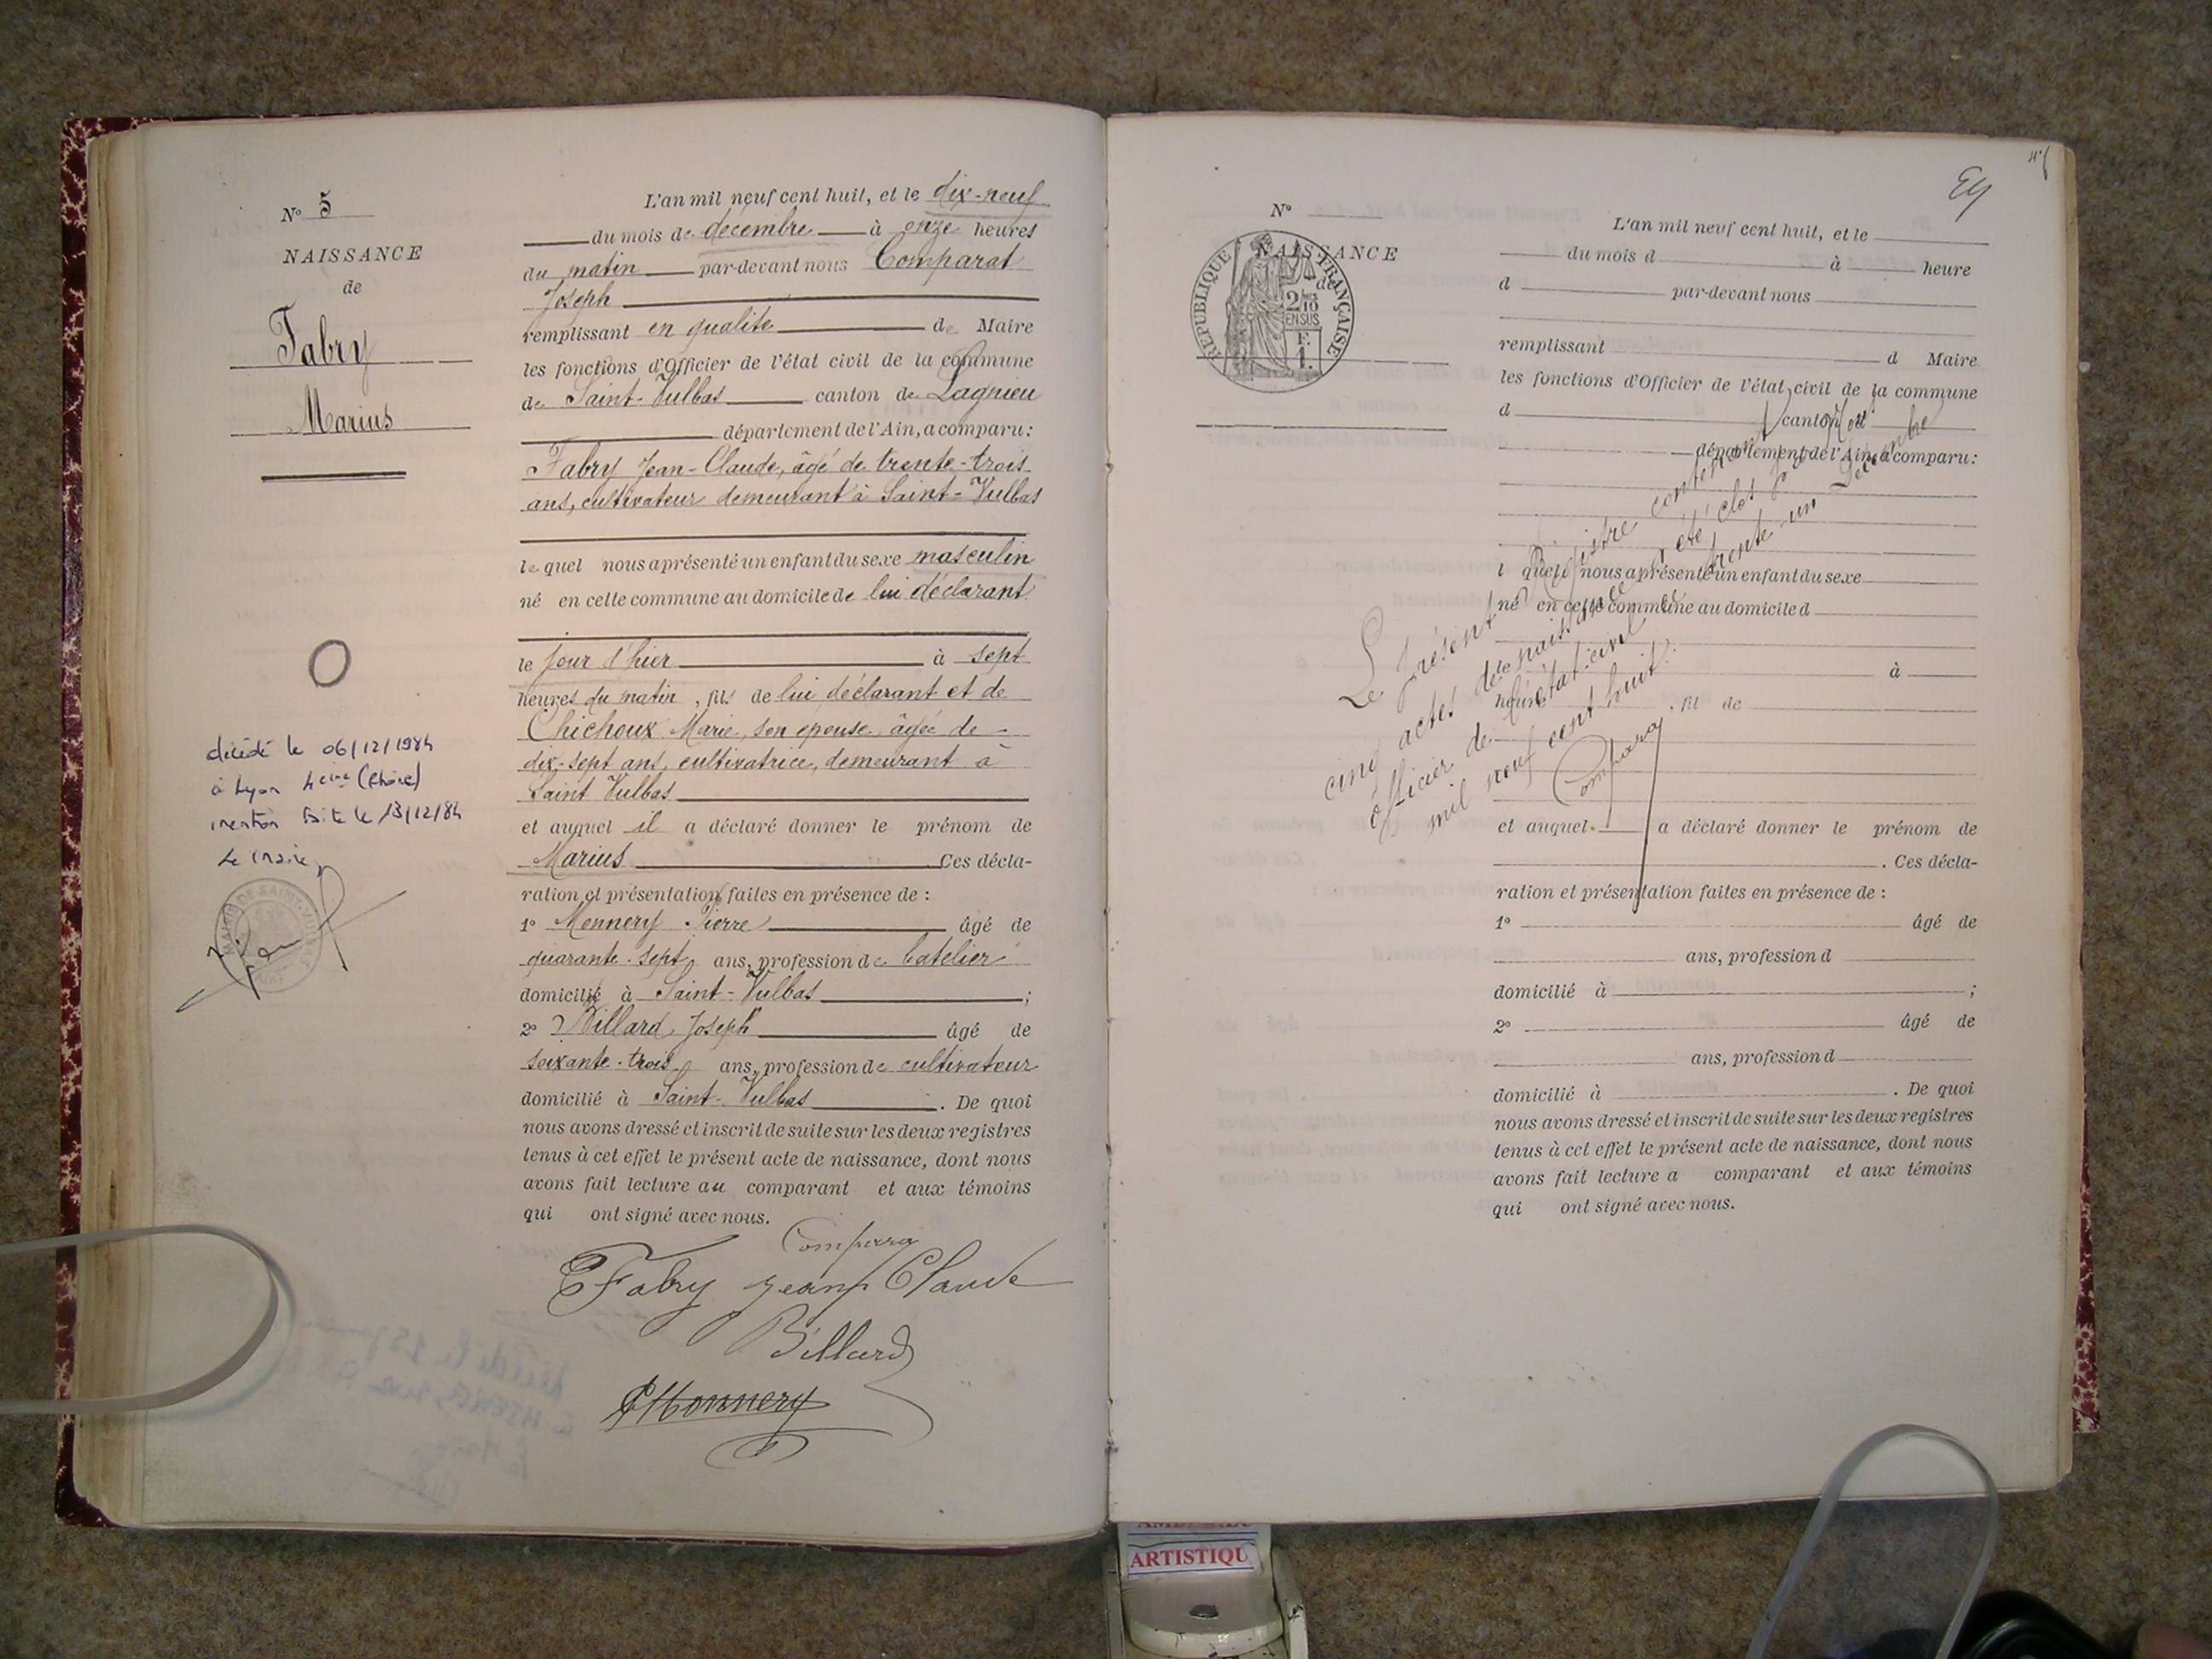 N° 5
NAISSANCE
de
Fabry
Marius
décédé le 06/12/1984
à Lyon 4eme (Rhône)
mention faite le 13/12/84
Le Maire,
MAIRIE DE SAINT-VULBAS
L'an mil neuf cent huit, et le dix-neuf
du mois de décembre à onze heures
du matin par-devant nous Comparat
Joseph
remplissant en qualité de Maire
les fonctions d'Officier de l'état civil de la commune
de Saint-Vulbas canton de Lagnieu
département de l'Ain, a comparu:
Fabry Jean-Claude, âgé de trente-trois
ans, cultivateur demeurant à Saint-Vulbas
lequel nous a présenté un enfant du sexe masculin
né en cette commune au domicile de lui déclarant
le jour d'hier à sept
heures du matin, fils de lui déclarant et de
Chichoux Marie, son epouse âgée de
dix-sept ans, cultivatrice, demeurant à
Saint Vulbas
et auquel il a déclaré donner le prénom de
Marius Ces décla-
ration et présentation faites en présence de :
1° Monnery Pierre âgé de
quarante-sept ans, profession de batelier
domicilié à Saint-Vulbas ;
2° Billard Joseph âgé de
soixante-trois ans, profession de cultivateur
domicilié à Saint-Vulbas . De quoi
nous avons dressé et inscrit de suite sur les deux registres
tenus à cet effet le présent acte de naissance, dont nous
avons fait lecture au comparant et aux témoins
qui ont signé avec nous.
Comparat
Fabry Jean Claude
Billard
P Monnery
N°
NAISSANCE
de
REPUBLIQUE FRANÇAISE
2/10
EN SUS
F.
1.
L'an mil neuf cent huit, et le
du mois d à heure
d par-devant nous
remplissant d Maire
les fonctions d'Officier de l'état civil de la commune
d canton d
département de l'Ain, a comparu:
l quel nous a présenté un enfant du sexe
né en cette commune au domicile d
le à
heure , fil de
et auquel a déclaré donner le prénom de
. Ces décla-
ration et présentation faites en présence de :
1° âgé de
ans, profession d
domicilié à ;
2° âgé de
ans, profession d
domicilié à . De quoi
nous avons dressé et inscrit de suite sur les deux registres
tenus à cet effet le présent acte de naissance, dont nous
avons fait lecture a comparant et aux témoins
qui ont signé avec nous.
Le présent Registre contenant
cinq actes de naissance a été clos par Nous
officier de l'état civil le trente-un Décembre
mil neuf cent huit.
Comparat
ARTISTIQU